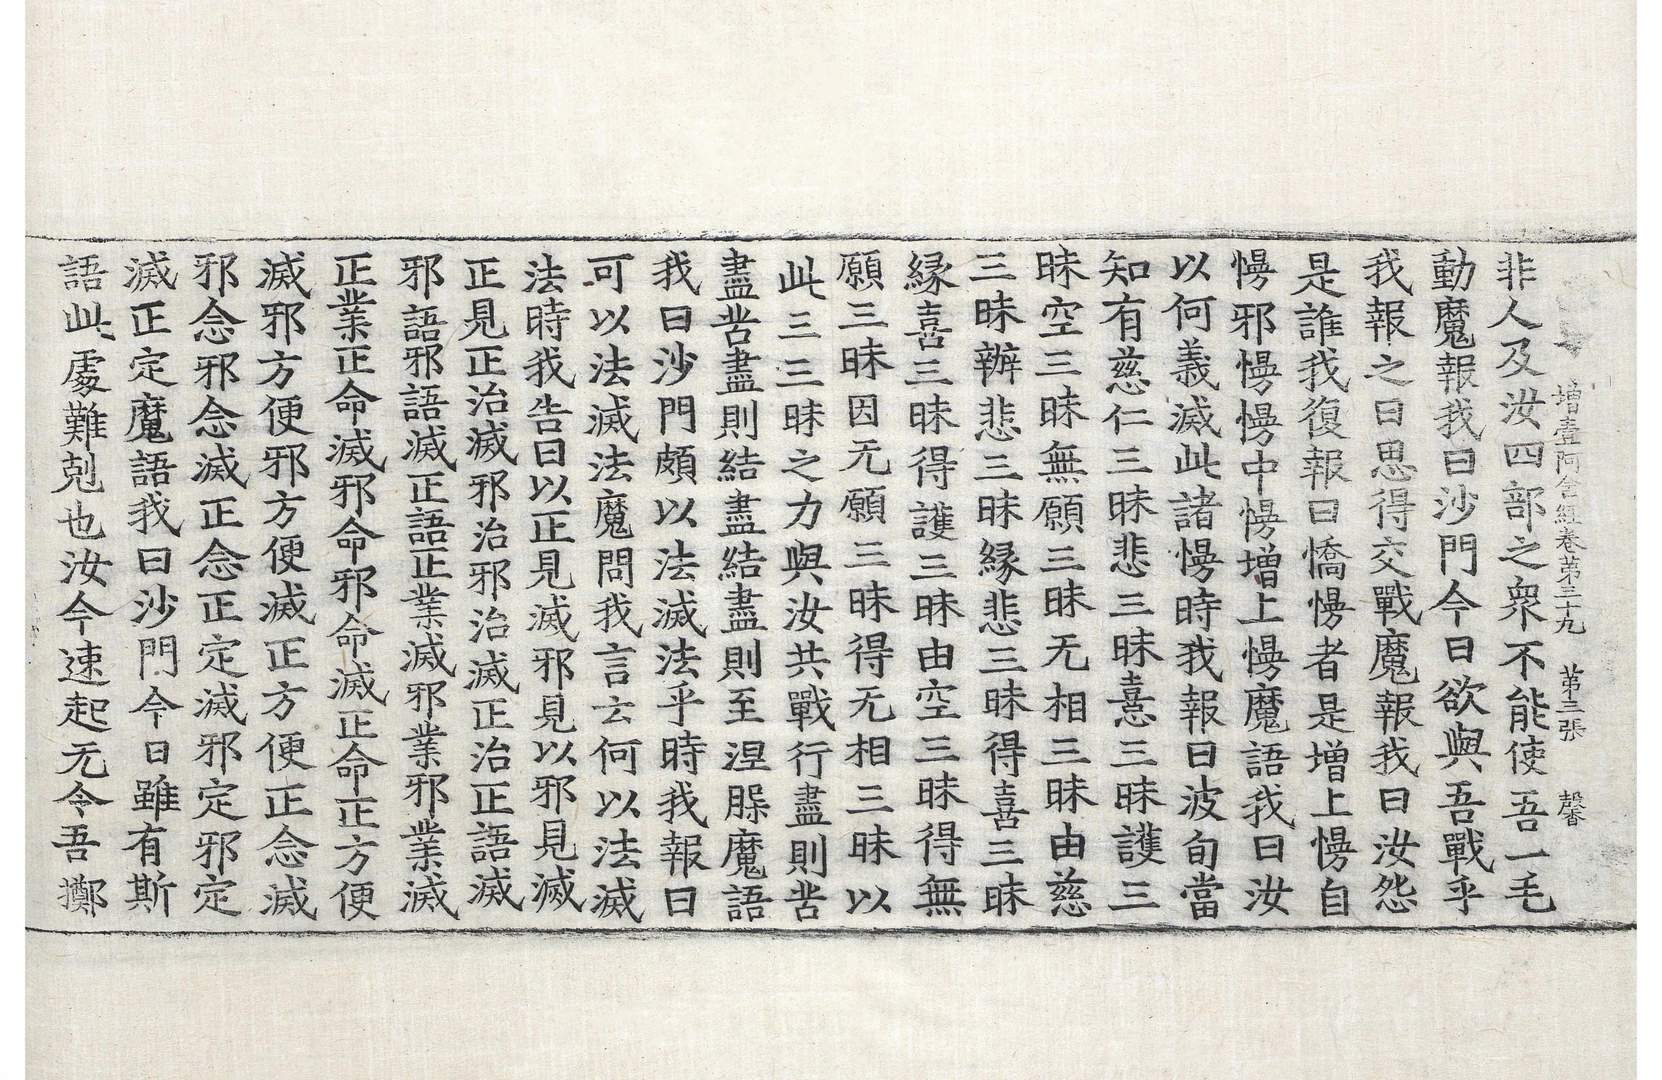 增壹阿含經卷第三十九 第三張 馨
非人及汝四部之衆不能使吾一毛
動魔報我曰沙門今日欲與吾戰乎
我報之曰思得交戰魔報我曰汝怨
是誰我復報曰憍慢者是增上慢自
慢邪慢慢中慢增上慢魔語我曰汝
以何義滅此諸慢時我報曰波旬當
知有慈仁三昧悲三昧憙三昧護三
昧空三昧無願三昧无相三昧由慈
三昧辦悲三昧緣悲三昧得喜三昧
緣喜三昧得護三昧由空三昧得無
願三昧因无願三昧得无相三昧以
此三三昧之力與汝共戰行盡則苦
盡苦盡則結盡結盡則至涅槃魔語
我曰沙門頗以法滅法乎時我報曰
可以法滅法魔問我言云何以法滅
法時我告曰以正見滅邪見以邪見滅
正見正治滅邪治邪治滅正治正語滅
邪語邪語滅正語正業滅邪業邪業滅
正業正命滅邪命邪命滅正命正方便
滅邪方便邪方便滅正方便正念滅
邪念邪念滅正念正定滅邪定邪定
滅正定魔語我曰沙門今日雖有斯
語此處難剋也汝今速起无令吾擲